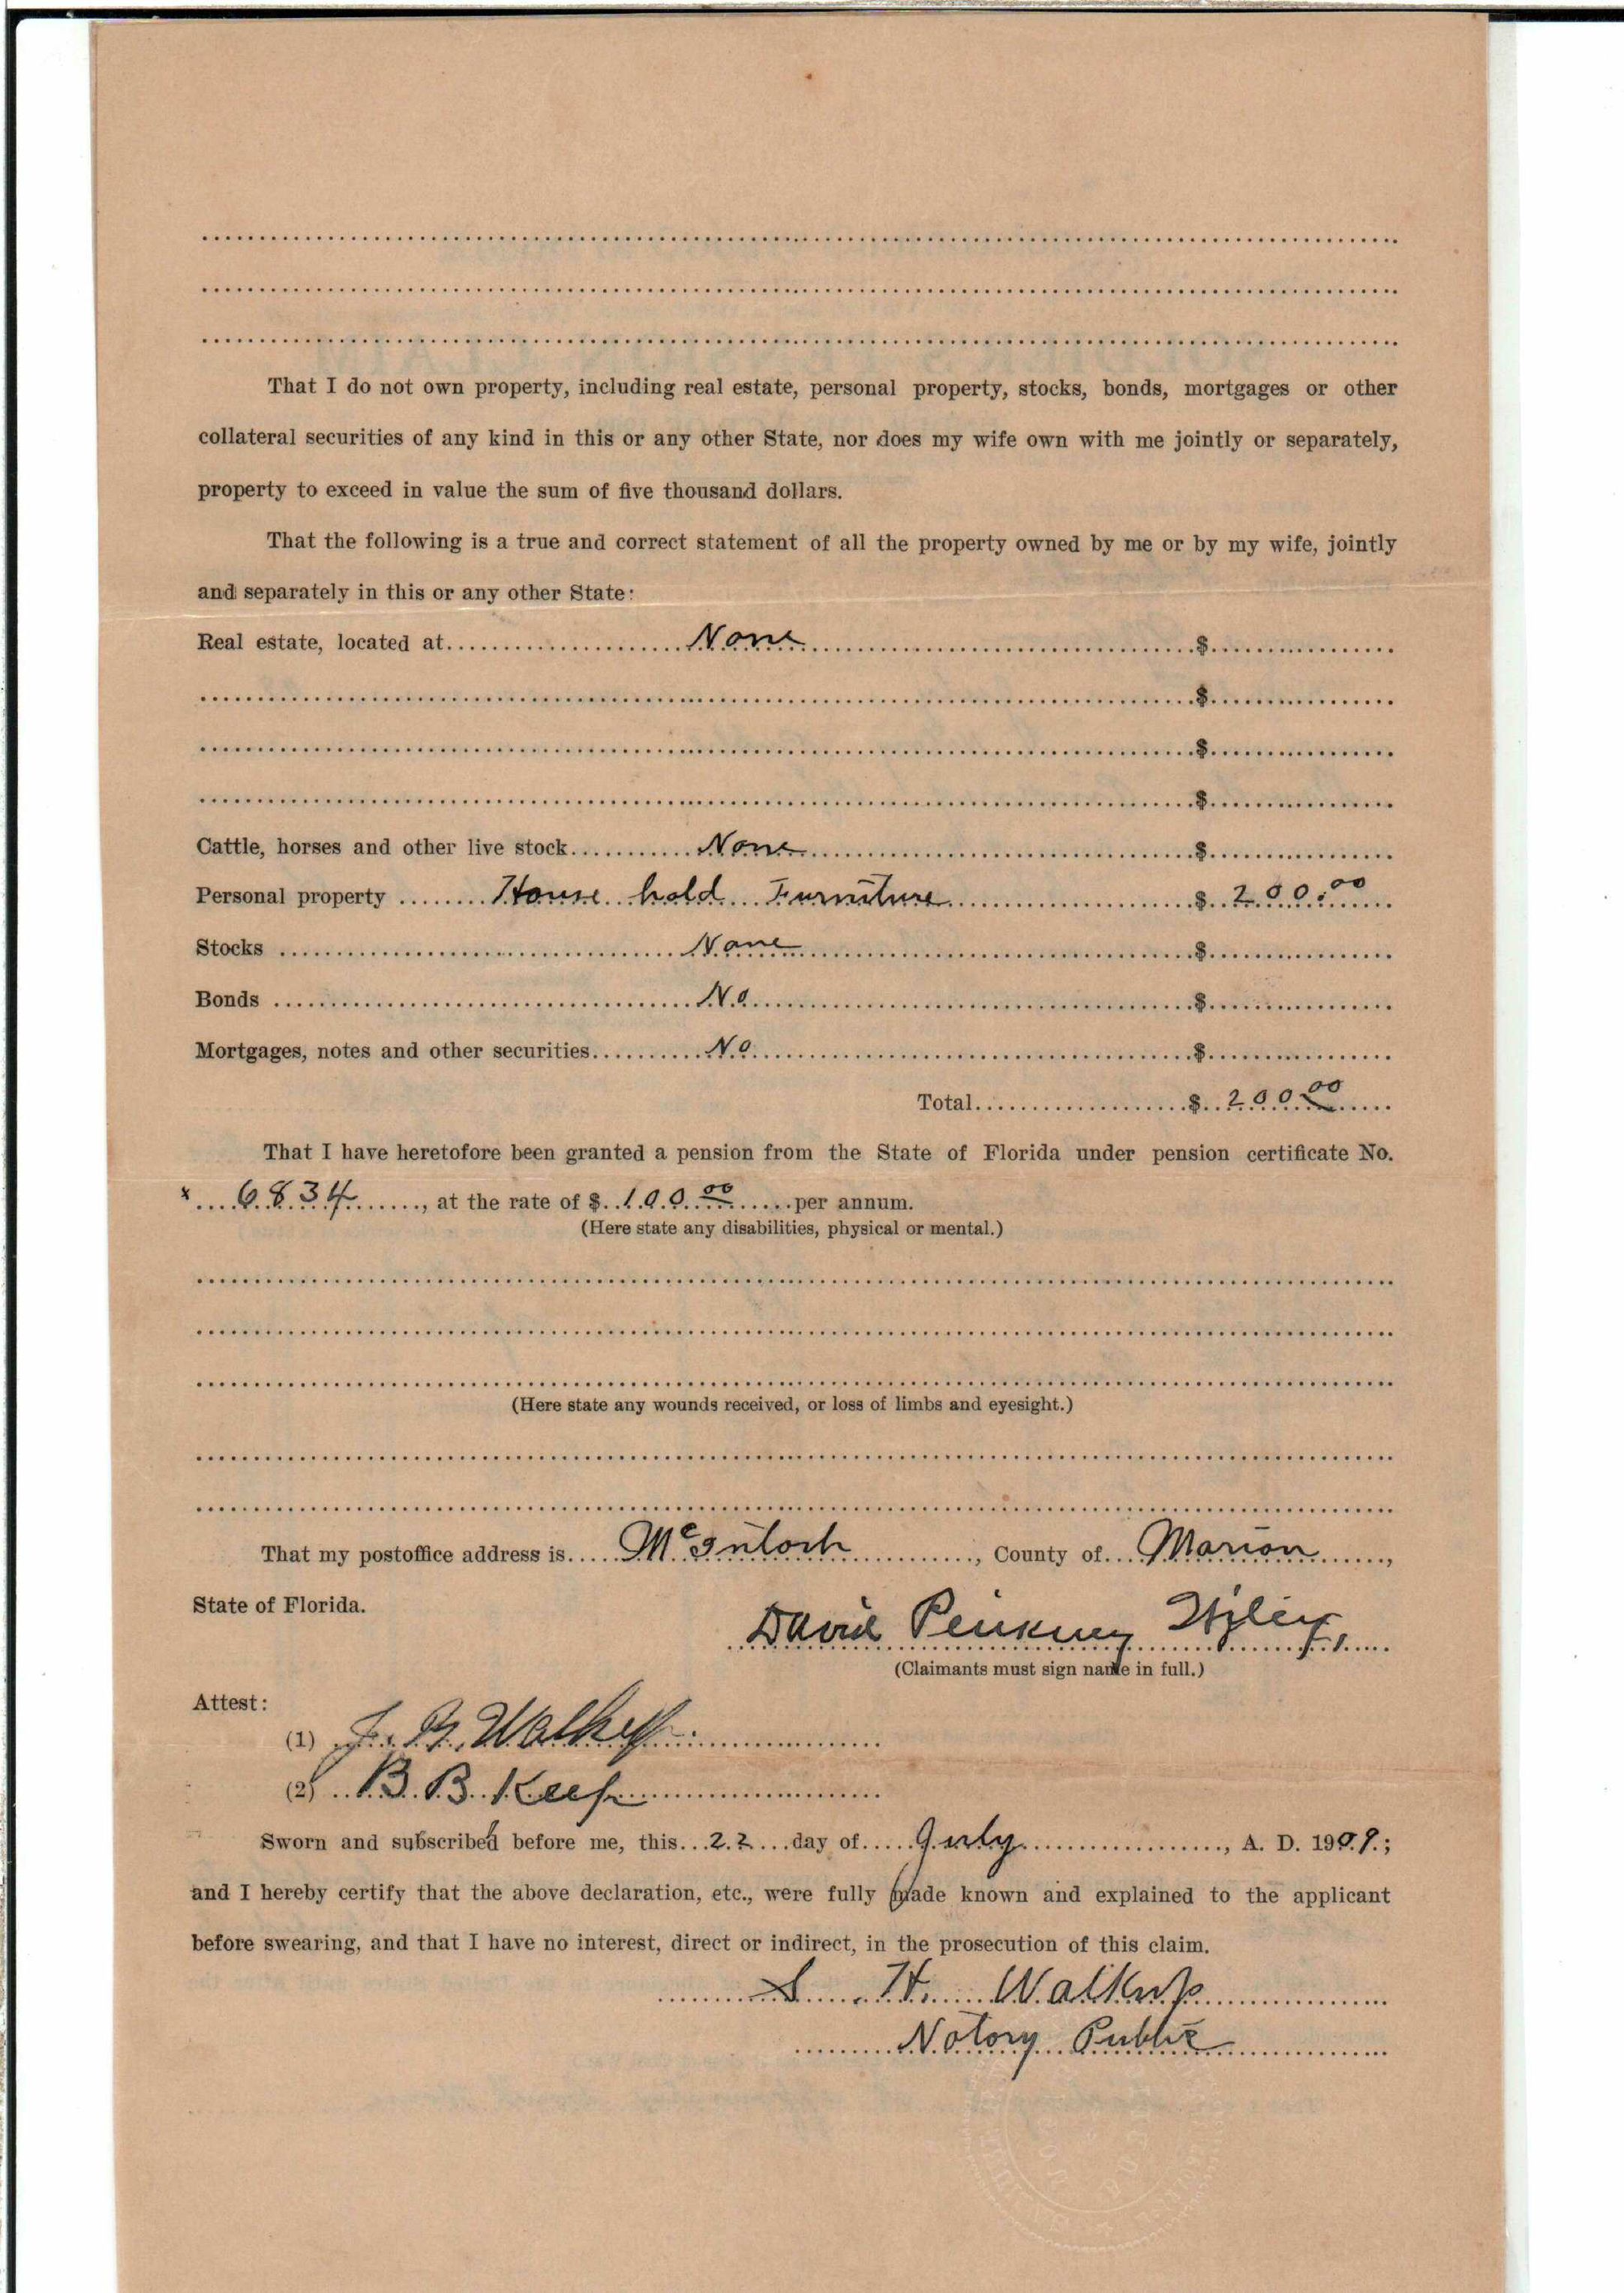 That I do not own property, including real estate, personal property, stocks, bonds, mortgages or other
collateral securities of any kind in this or any other State, nor does my wife own with me jointly or separately,
property to exceed in value the sum of five thousand dollars.
That the following is a true and correct statement of all the property owned by me or by my wife, jointly
and separately in this or any other State:
Real estate, located at None $
$
$
$
Cattle, horses and other live stock None $
Personal property House hold Furniture $ 200.00
Stocks None $
Bonds No $
Mortgages, notes and other securities No $
Total $ 200 00
That I have heretofore been granted a pension from the State of Florida under pension certificate No.
x 6834, at the rate of $ 100 00 per annum.
(Here state any disabilities, physical or mental.)
(Here state any wounds received, or loss of limbs and eyesight.)
That my postoffice address is McIntosh, County of Marion,
State of Florida.
David Pinkney
(Claimants must sign name in full.)
Attest:
(1)
(2) B. B. Keep
Sworn and subscribed before me, this 22 day of July, A. D. 1909.;
and I hereby certify that the above declaration, etc., were fully made known and explained to the applicant
before swearing, and that I have no interest, direct or indirect, in the prosecution of this claim.
S. H. Walkup
Notory Public